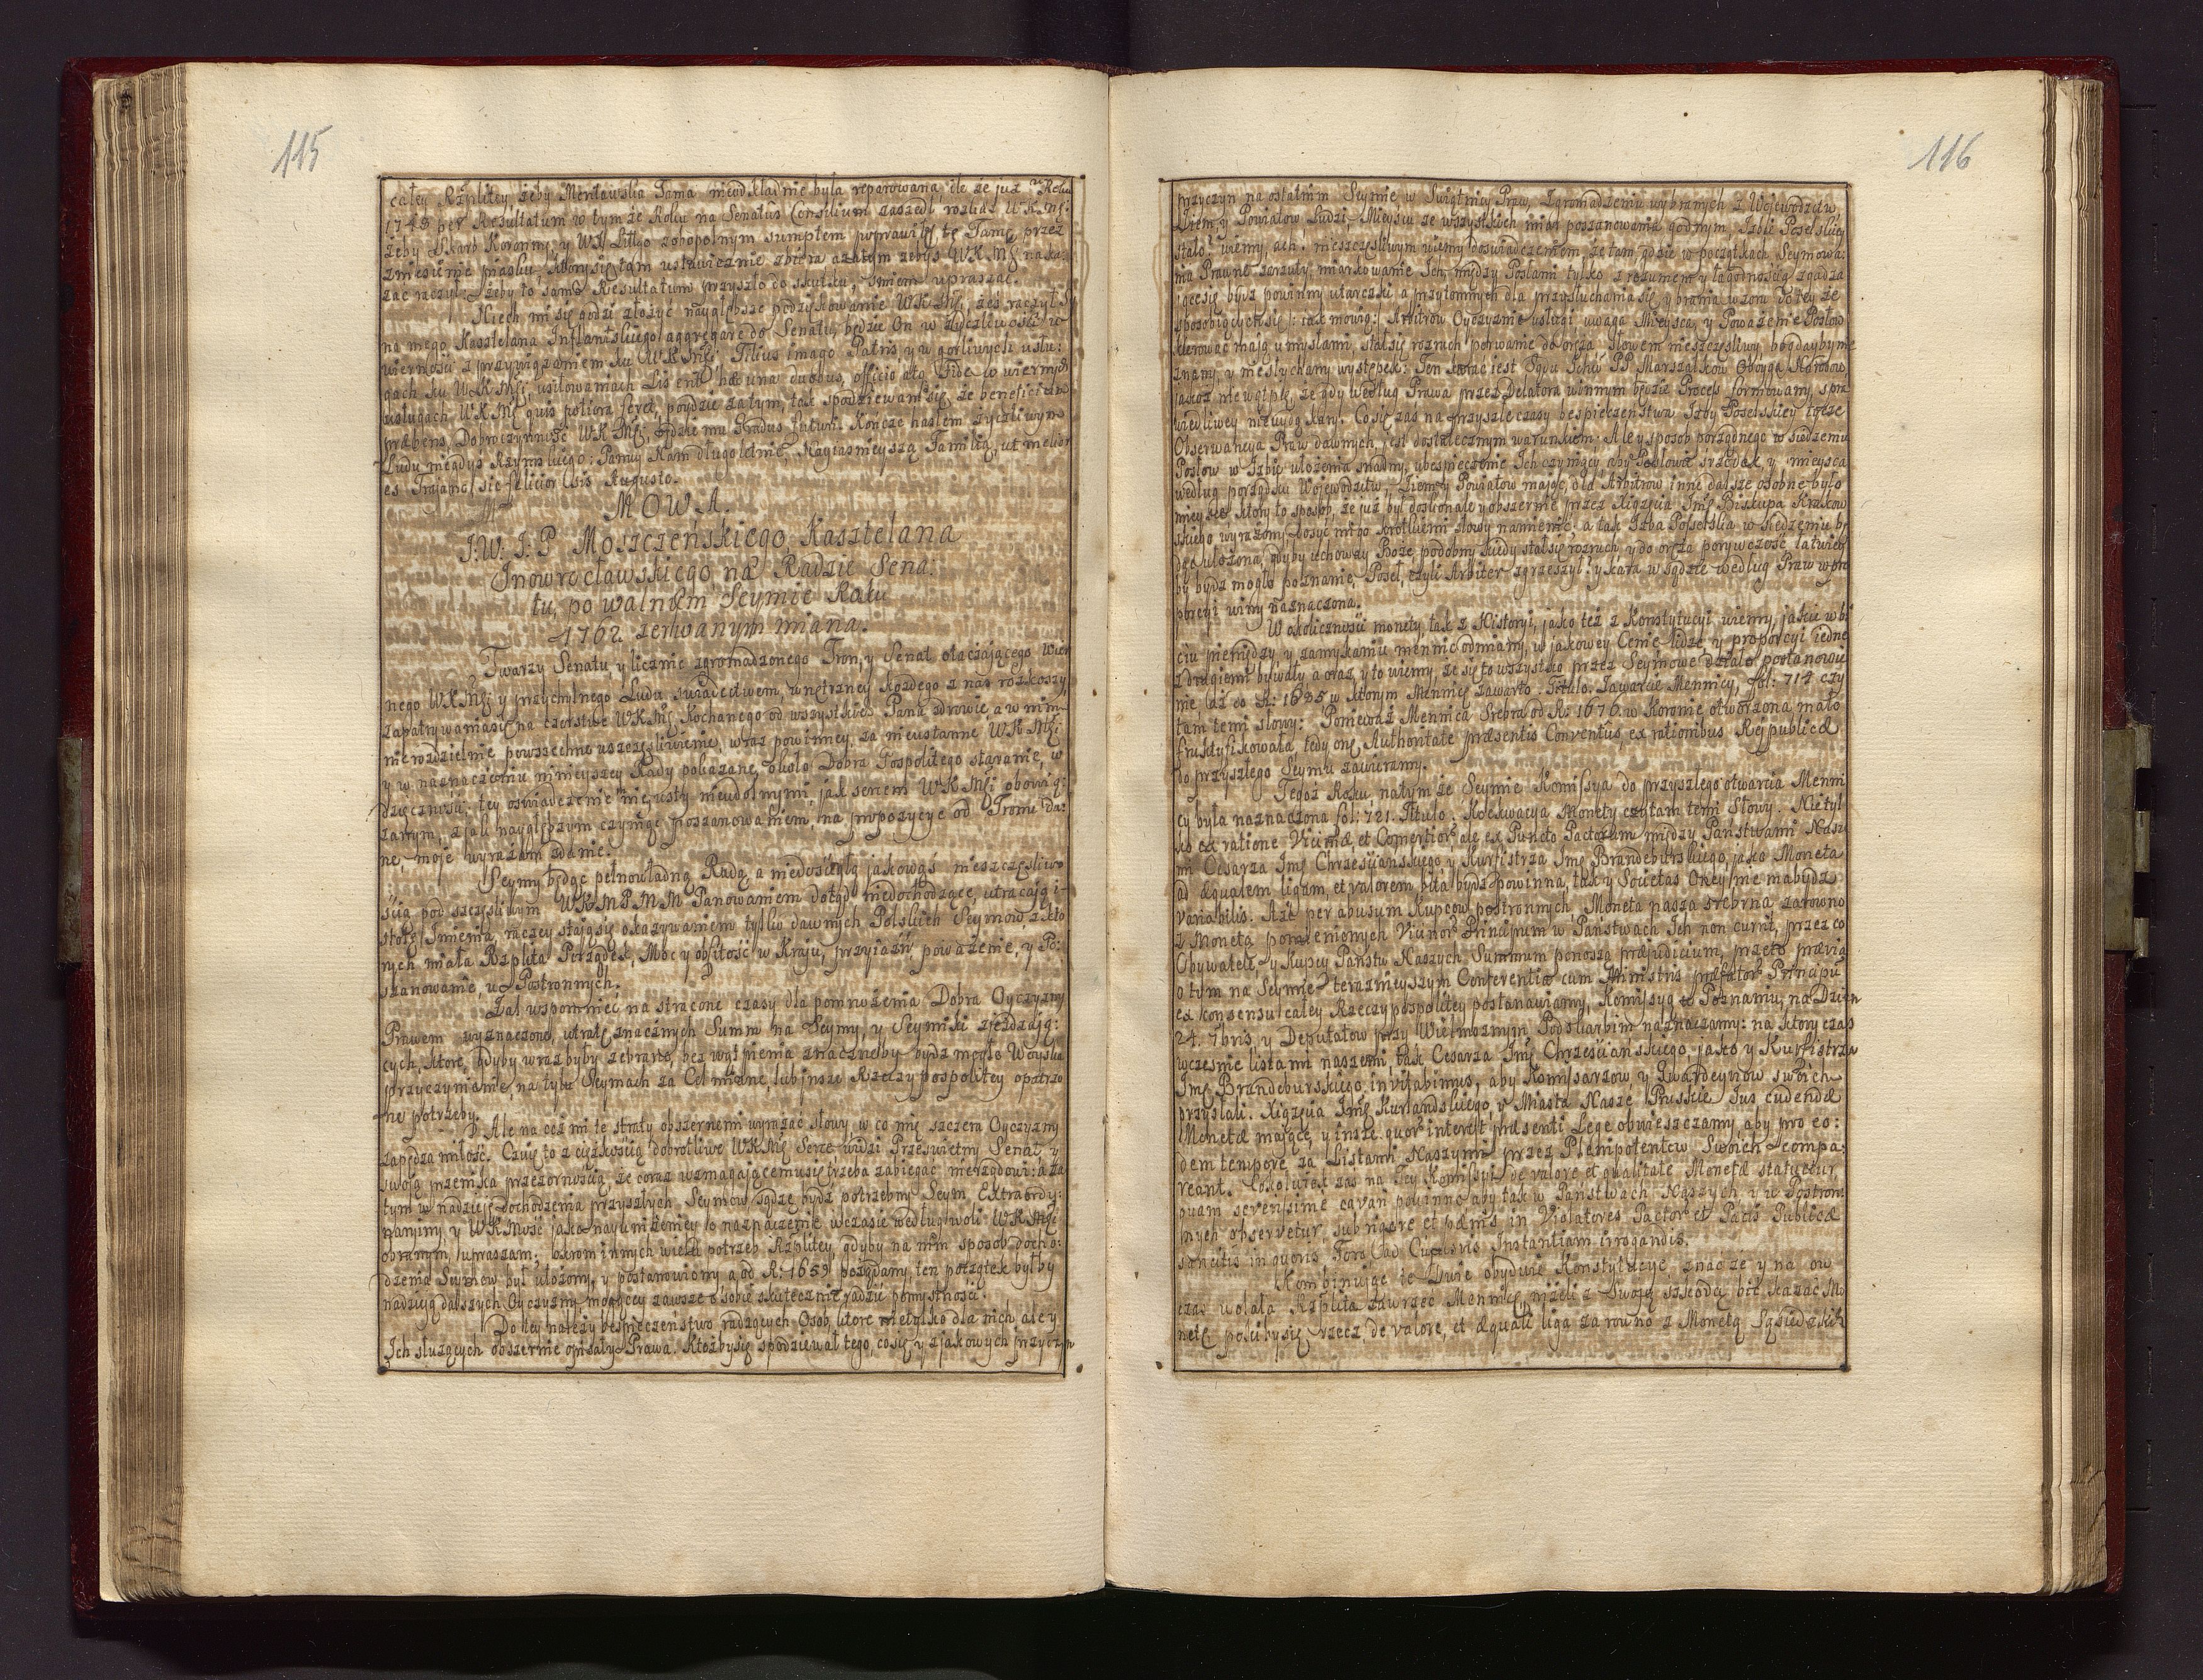 115
całey Rzplitey, żeby Montawska Tama nieodkładnie była reparowana, ile że już w Roku
1748 per Resultatum w tym że Roku na Senatus Consilium zaszedł rozkaz W.K.Mći
żeby Skarb Koronny, y WX Littgo zobopolnym sumptem poprawiły tę Tamę, przez
zniesienie piasku, ktory się tam ustawicznie zbiera a zatym żebyś WKMć naka:
zać raczył: żeby to samo Resultatum przyszło do skutku, śmiem upraszać.
Niech mi się godzi złożyć naygłębsze podziękowanie WKMći, żeś raczył sy
na mego Kasztelana Inflantskiego aggregare do Senatu, będzie On w życzliwości w
wierności z przywiązaniem ku WKMći Filius imago Patris y w gorliwych usłu:
gach ku WKMći usiłowaniach Lis erit hæc una duobus, officio atq Fide w wiernych
usługach WKMći quis potiora feret, poydzie zatym, tak spodziewam się, że beneficium
præbens Dobroczynność WKMći, będzie mu Gradus futuri. Kończe hasłem życzliwym
Ludu niegdyś Rzymskiego: Panuy Nam długoletnie, Nayiasnieyszą Familią, ut melior
es Trajano sic felicior sis Augusto.
MOWA.
J.W. J.P Moszczeńskiego Kasztelana
Jnowrocławskiego na Radzie Sena:
tu, po walnem Seymie Roku
1762 zerwanym miana.
Twarzy Senatu, y licznie zgromadzonego Tron, y Senat otaczającego wier
nego WKMći y przychylnego Ludu swiadectwem, wnętrzney każdego z nas rozkoszy,
zapatrywaniasię na czerstwe WKMć Kochanego od wszystkich Pana zdrowie, a w nim
nierozdzielnie powszechne uszczęśliwienie, wraz powinney za nieustanne WKMći
y w naznaczeniu ninieyszey Rady pokazane, około Dobra Pospolitego staranie, w
dzięcznosci: tey oswiadczenie nie usty nieudolnymi, jak sercem WKMći obowią:
zanym, z jak naygłębszym czyniąc poszanowaniem, na propozycye od Tronu da:
ne, moje wyrażam zdanie.
Seymy będąc pełnowładną Radą, a niedościgłą jakowąś nieszczęsliwo
scią pod szczęsliwym WKMPMM Panowaniem dotąd niedochodzące, utracają i:
stotę Jmienia, raczey stająsię okazywaniem tylko dawnych Polskich Seymow, z kto
rych miała Rzplita Porządek, Moc y obfitość w Kraju, przyiaźń, poważenie, y Po:
szanowanie, u Postronnych.
Żal wspomnieć na stracone czasy dla pomnożenia Dobra Oyczyzny
Prawem wyznaczone, utratę znacznych Summ na Seymy, y Seymiki zjeżdżają:
cych, ktore, gdyby wraz były zebrane, bez wątpienia znaczneby bydź mogło Woyska
przyczynienie, na tylu Seymach za Cel miane, lub insze Rzeczypospolitey opatrzo
ne potrzeby.
Ale na coż mi te straty obszernemi wyrażać słowy, w co mię szczera Oyczyzny
zapędza miłość. Czuię to z ciężkością dobrotliwe WKMći Serce, widzi Prześwietny Senat, y
swoią przenika przezornością, że coraz wzmagającemusię trzeba zabiegać nierządowi: a za
tym w nadzieję dochodzenia przyszłych Seymow sądzę bydź potrzebny Seym Extraordy:
naryjny y WKMość jako nayuniżeniey o naznaczenie w czasie według woli WKMći
obranym, upraszam; okrom innych wielu potrzeb Rzplitey, gdyby na nim sposob docho:
dzenia Seymow był ułożony, y postanowiony, a od R: 1659 pożądany, ten początek byłby
nadzieją dalszych Oyczyzny mogącey zawsze o sobie skutecznie radzić pomyslności.
Do tey należy bespieczenstwo radzących Osob, ktore nietylko dla nich ale y
Jch służących obszernie opisały Prawa. Ktożbysię spodziewał tego, cosię y z jakowych przyczyn
116
przyczyn na ostatnim Seymie w Swiątnicy Praw, Zgromadzeniu wybranych z Wojewodztw,
Ziem, y Powiatow Ludzi, Mieyscu ze wszystkich miar poszanowania godnym, Izbie Poselskiey
stało? wiemy, ach! nieszczęsliwym wiemy doświadczeniem, że tam gdzie w początkach Seymowa:
nia Prawne zarzuty, miarkowanie Jch, między Posłami tylko z rozumem y łagodnością zgadza
jącesię bydź powinny utarczki a przytomnych dla przysłuchania się y brania wzoru do tey że
sposobiącychsię /: jak mowią:/ Arbitrow Oyczyznie usługi, uwaga Mieysca, y Poważenie Posłow
kierować mają umysłami, stałsię rozruch porwanie do oręża. Słowem nieszczęsliwy bogdaybynie
znany, y niesłychany występek: Ten teraz jest Sądu Jchć PP Marszałkow Oboyga Narodow
jakoż nie wątpię, że gdy według Prawa przez Delatora winnym będzie Proces formowany, spra
wiedliwey nieuydą kary. Cosię zas na przyszłe czasy bespieczeństwa Izby Poselskiey tycze
Obserwancya Praw dawnych, jest dostatecznym warunkiem: Ale y sposob porządnego w siedzeniu
Posłow w Izbie ułożenia snadny, ubespieczenie Ich czyniący aby Posłowie srzodek y mieysca
według porządku Wojewodztw, Ziem y Powiatow mając, dla Arbitrow inne dalsze osobne było
mieysce, ktory to sposob, że już był doskonale y obszernie przez Xiążęcia Jmć Biskupa Krakow
skiego wyrażony, dosyć mi go krotkiemi słowy namienić, a tak Izba Poselska w siedzeniu bę
dąc ułożona, gdyby uchoway Boże podobny kiedy stałsię rozruch, y do oręża porywczość, łatwieb
by bydź mogło poznanie, Poseł, czyli Arbiter zgrzeszył? y kara w sądzie według Praw w pro
porcyi winy naznaczona.
W okoliczności monety, tak z Historyi, jako też z Konstytucyi wiemy, jakie w bi
ciu pieniędzy y zamykaniu mennic odmiany, w jakowey Cenie lidze, y proporcyi iedne
z drugiemi bywały, a oraz y to wiemy, że się to wszystko przez Seymowe działo postanowie
nie, aż do R: 1685 w ktorym Mennicę zawarto. Titulo. Zawarcie Mennicy, fol: 714 czy
tam temi słowy: Ponieważ Mennica Srebra od R: 1676 w Koronie otworzona, mało
fruktyfikowała, tedy onę Authoritate præsentis Conventus, ex rationibus Reipublicæ
do przyszłego Seymu zawieramy.
Tegoż Roku, natym że Seymie Komissya do przyszłego otwarcia Menni
cy była naznaczona fol: 721. Titulo. Koekwacya Monety czytam temi Słowy. Nietyl
ko ex ratione Viciniæ et Comertior, ale ex Puncto Pactorum między Państwami Nasze
mi Cesarza Jmć Chrześciańskiego y Kurfistrza Jmć Brandeburskiego, jako Moneta
ad æqualem ligam, et valorem bita bydź powinna, tak y Societas Onejsme mabydź
variabilis. Aże per abusum Kupcow postronnych, Moneta nasza srebrna zarowno
z Monetą pomienionych Vicinor Principum w Państwach Ich non currit, przez co
Obywatele, y Kupcy Państw Naszych Summum ponoszą præjudicium, przeto prævia
o tym na Seymie teraznieyszym Conferentia cum Ministris præfator Principu
ex konsensu całey Rzeczypospolitey postanawiamy, Komissyą w Poznaniu, na Dzien
24. 7bris, y Deputatow przy Wielmożnym Podskarbim naznaczamy: na ktory czas
wczesnie listami naszemi, tak Cesarza Jmć Chrześciańskiego, jako y Kurfistrza
Jmć Brandeburskiego, invitabimus, aby Komissarzow y Gwardeynow swoich
przysłali. Xiążęcia Jmć Kurlandskiego, y Miasta Nasze Pruskie Jus cudendæ
Monetæ mające, y insze quor interest præsenti Lege obwieszczamy, aby pro eo:
dem tempore za Listami Naszymi przez Plenipotentow Swoich compa:
reant. Cokolwiek zas na tey Komissyi de valore et qualitate Monetæ statuetur,
quam serenissime cavari powinno, aby tak w Państwach Naszych, y w Postron
nych observetur, sub rigore et pænis in Violatores Pactor et Pacis Publicæ
sancitis in quovis Foro ad Cujusvis Instantiam irrogandis.
Kombinując te Dwie obydwie Konstytucye, znać że y na ow
czas wolała Rzplita zawrzeć Mennicę, niżeli z Swoją szkodą bić kazać Mo
netę, pokibysię rzecz, de valore, et æquali liga zarowno z Monetą Sąsiedzkich